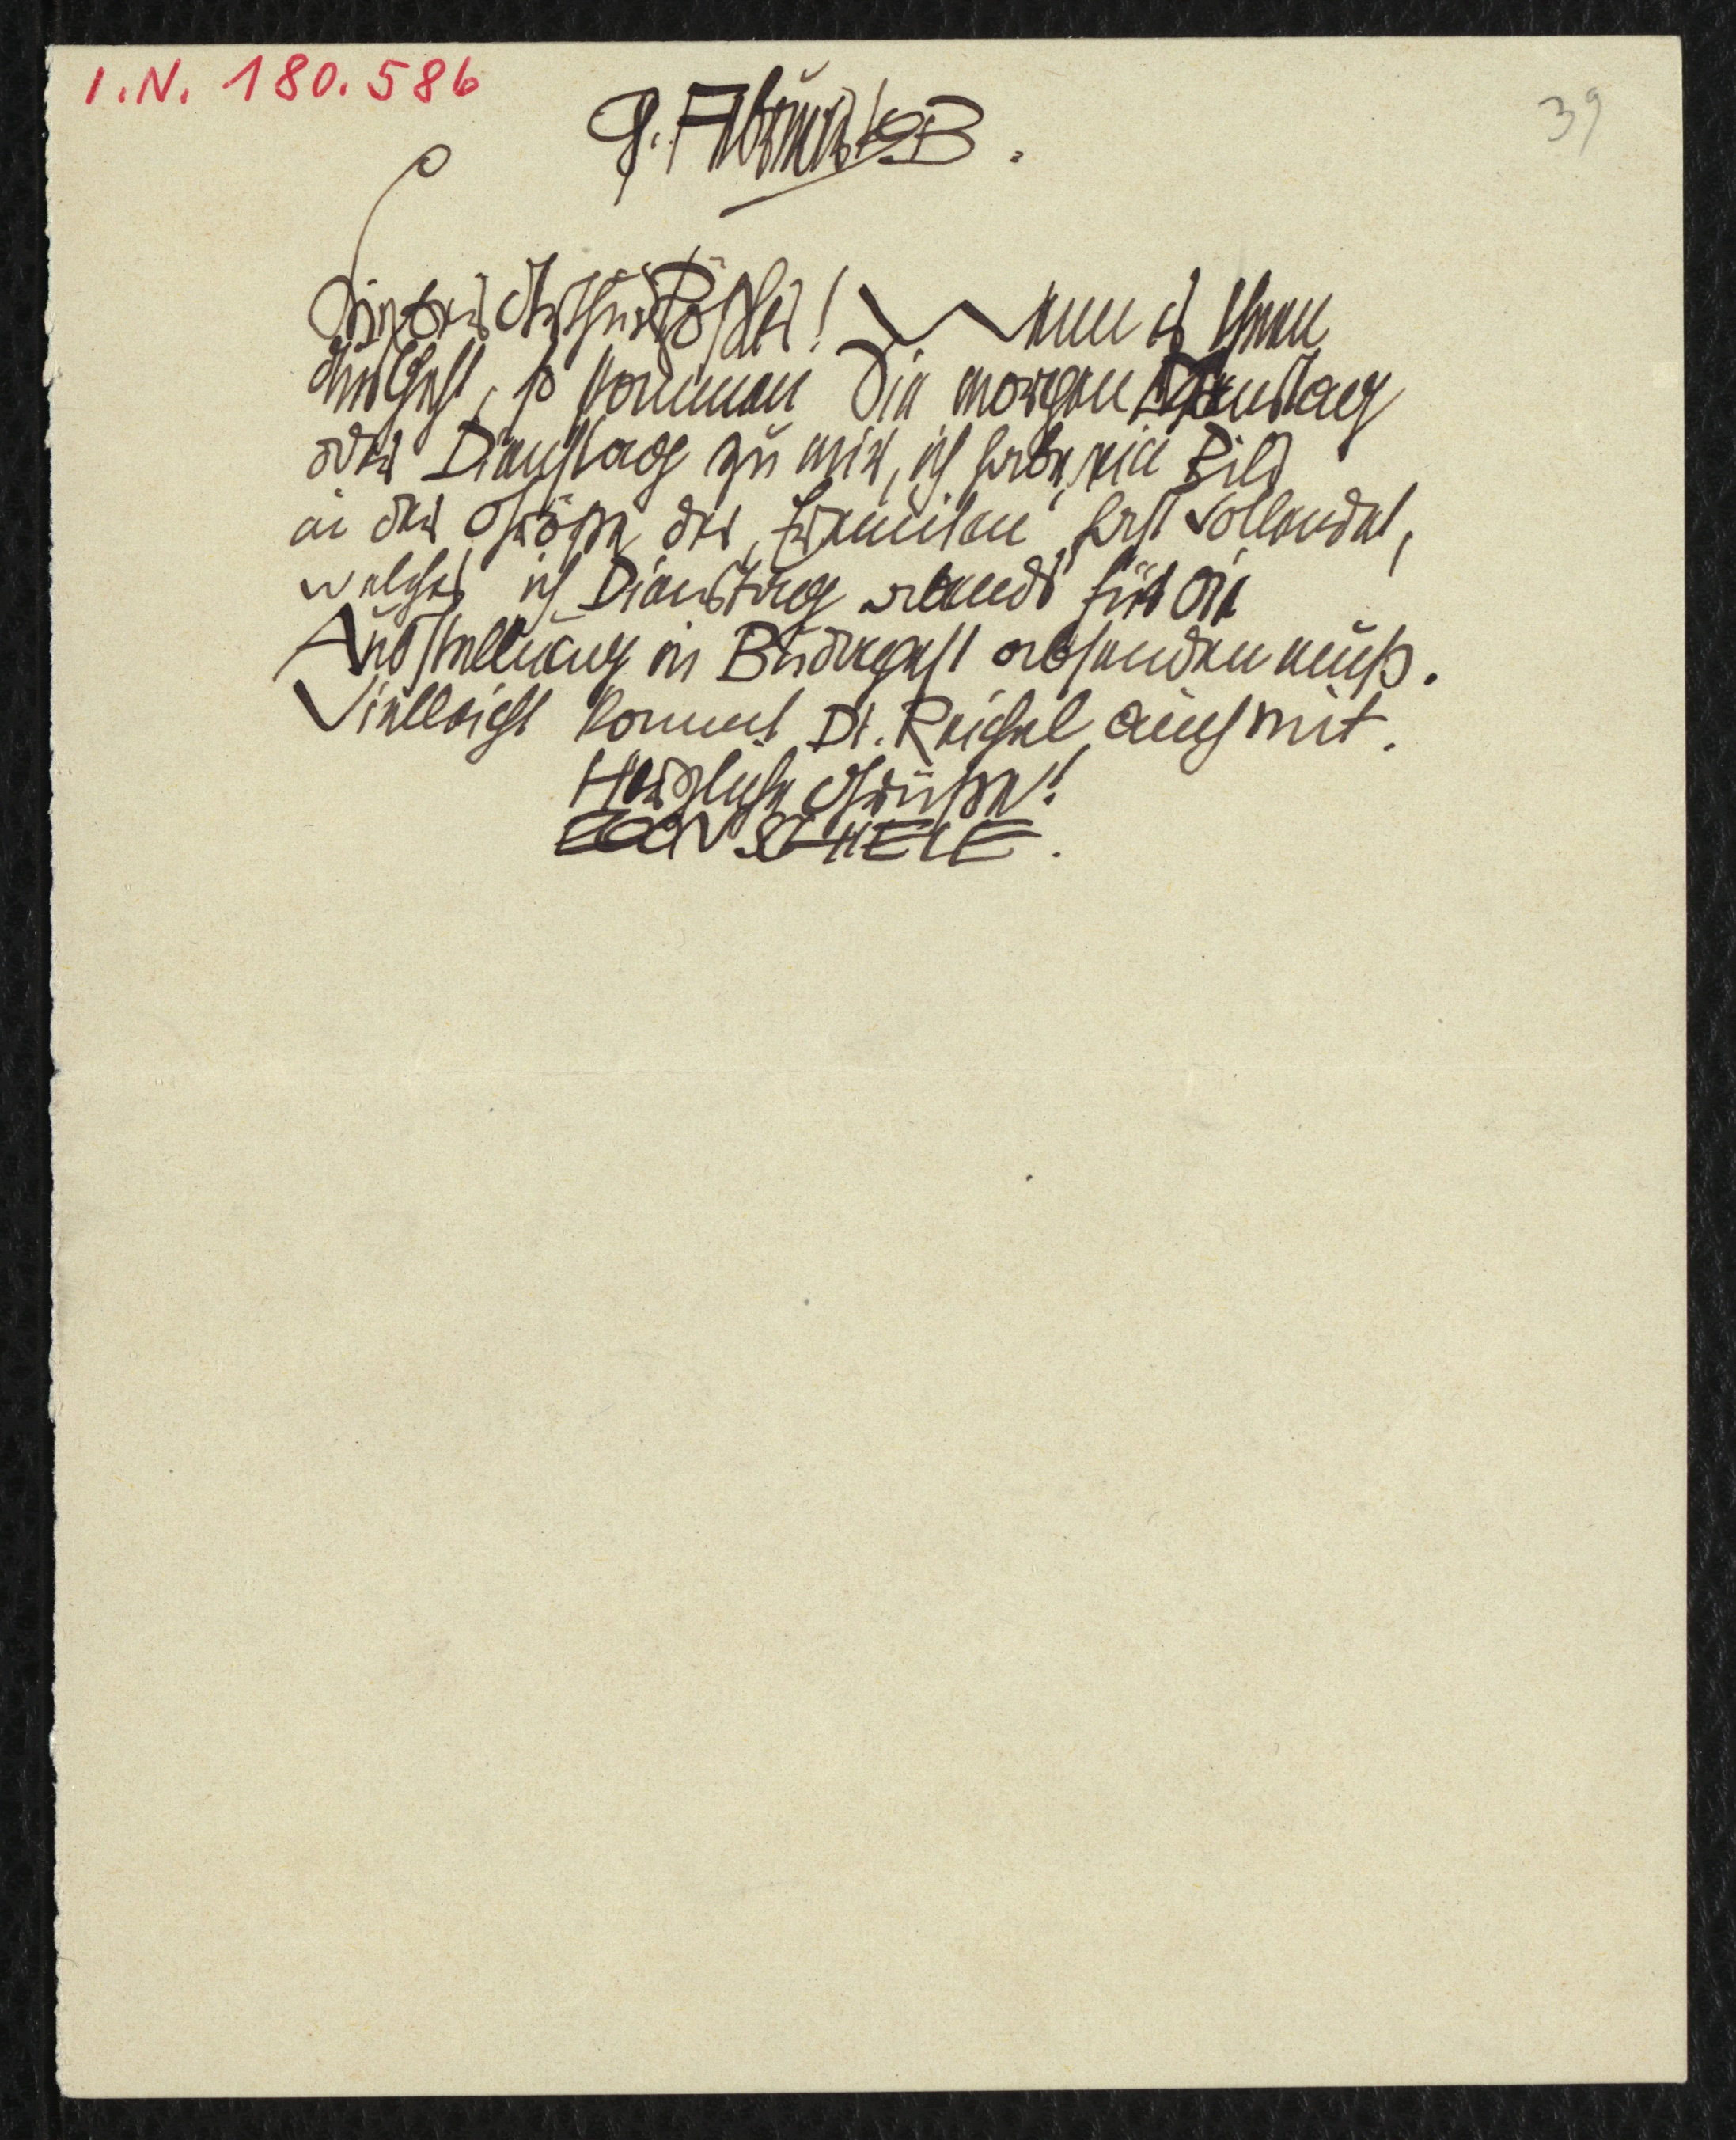 I.N. 180.586
39
9. Februar 1913.
Lieber Arthur Rößler! Wenn es Ihnen
durchgeht, so kommen Sie morgen
oder Dienstag zu mir, ich habe ein Bild
in der Größe der „Eremiten“ fast vollendet,
welches ich Dienstag abends für die
Ausstellung in Budapest absenden muß.
Vielleicht kommt Dr. Reichel auch mit.
Herzliche Grüße!
EGON SCHIELE.